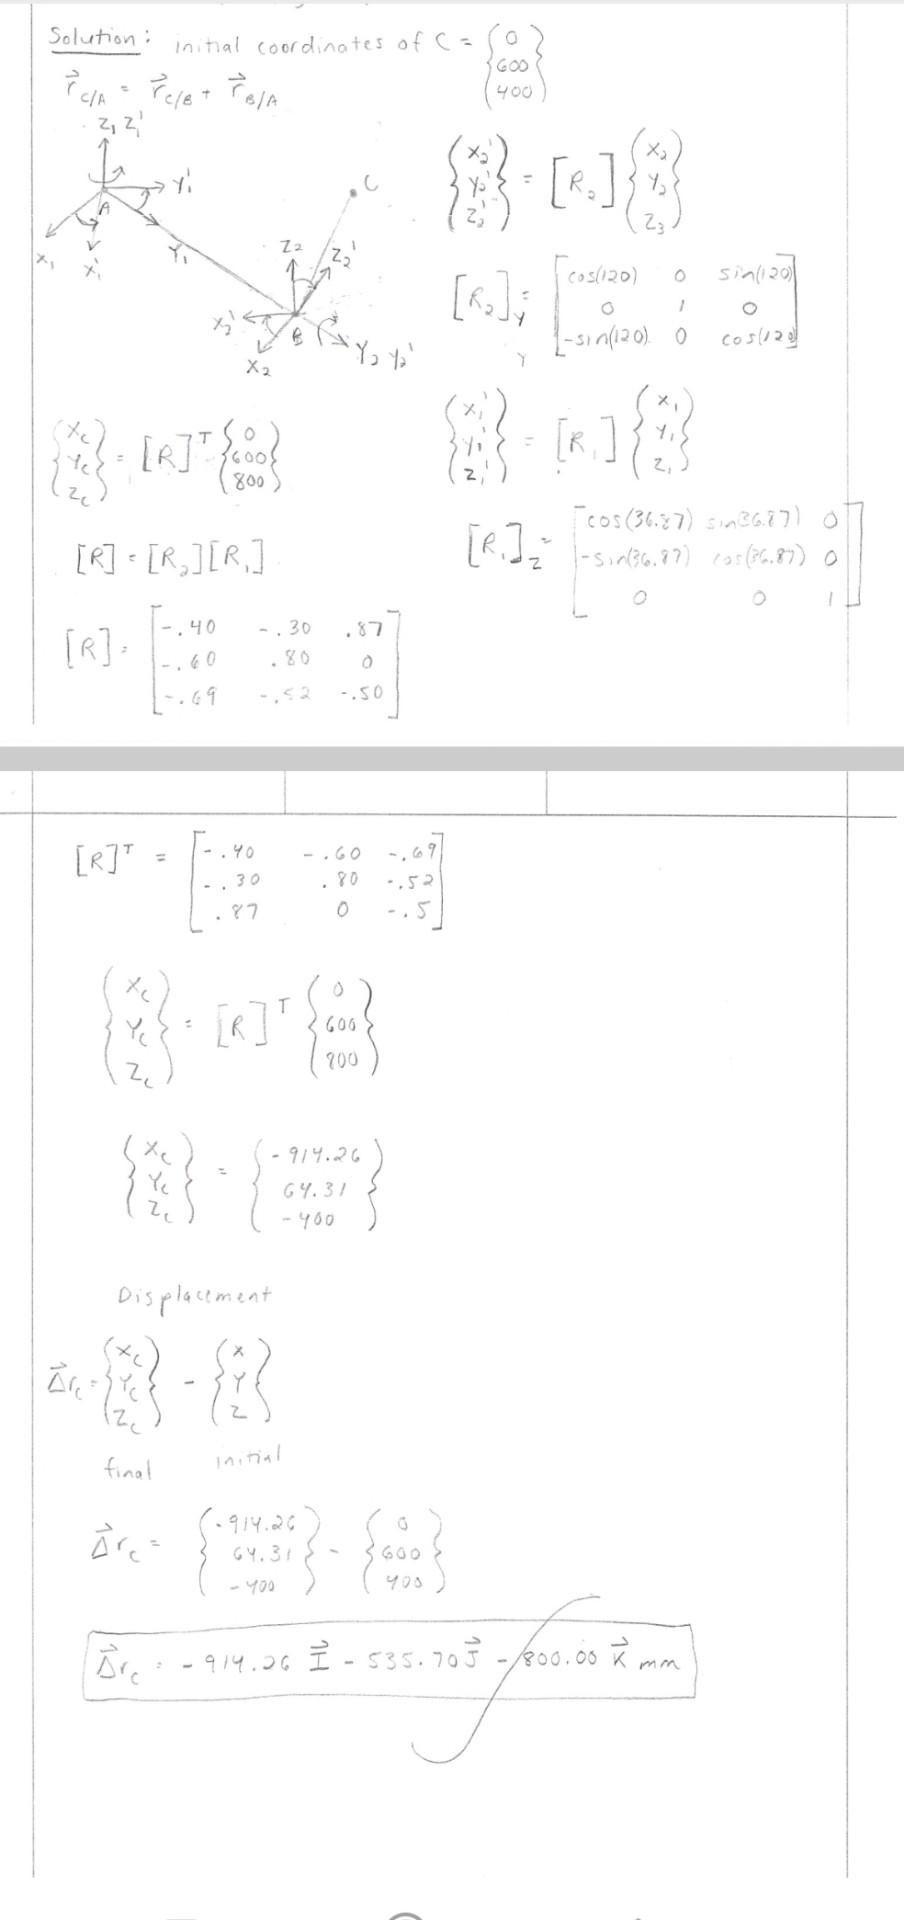 Solution: initial coordinates of C = {0 600 400}
r⃗C/A = r⃗C/B + r⃗B/A
Z₁ Z₁'
Y₁'
A
C
X₁
X₁'
Y₁
Z₂
Z₂'
X₂'
B
X₂
Y₂ Y₂'
{X₂' Y₂' Z₂'} = [R₂] {X₂ Y₂ Z₃}
[R₂]Y = [cos(120) 0 sin(120)
0 1 0
-sin(120) 0 cos(120)]
Y
{Xc Yc Zc} = [R]ᵀ {0 600 800}
{X₁' Y₁' Z₁'} = [R₁] {X₁ Y₁ Z₁}
[R] = [R₂][R₁]
[R₁]Z = [cos(36.87) sin(36.87) 0
-sin(36.87) cos(36.87) 0
0 0 1]
[R] = [-.40 -.30 .87
-.60 .80 0
-.69 -.52 -.50]
[R]ᵀ = [-.40 -.60 -.69
-.30 .80 -.52
.87 0 -.5]
{Xc Yc Zc} = [R]ᵀ {0 600 800}
{Xc Yc Zc} = {-914.26 64.31 -400}
Displacement
Δ⃗rc = {Xc Yc Zc} - {X Y Z}
final initial
Δ⃗rc = {-914.26 64.31 -400} - {0 600 400}
Δ⃗rc = -914.26 I⃗ - 535.70 J⃗ - 800.00 K⃗ mm